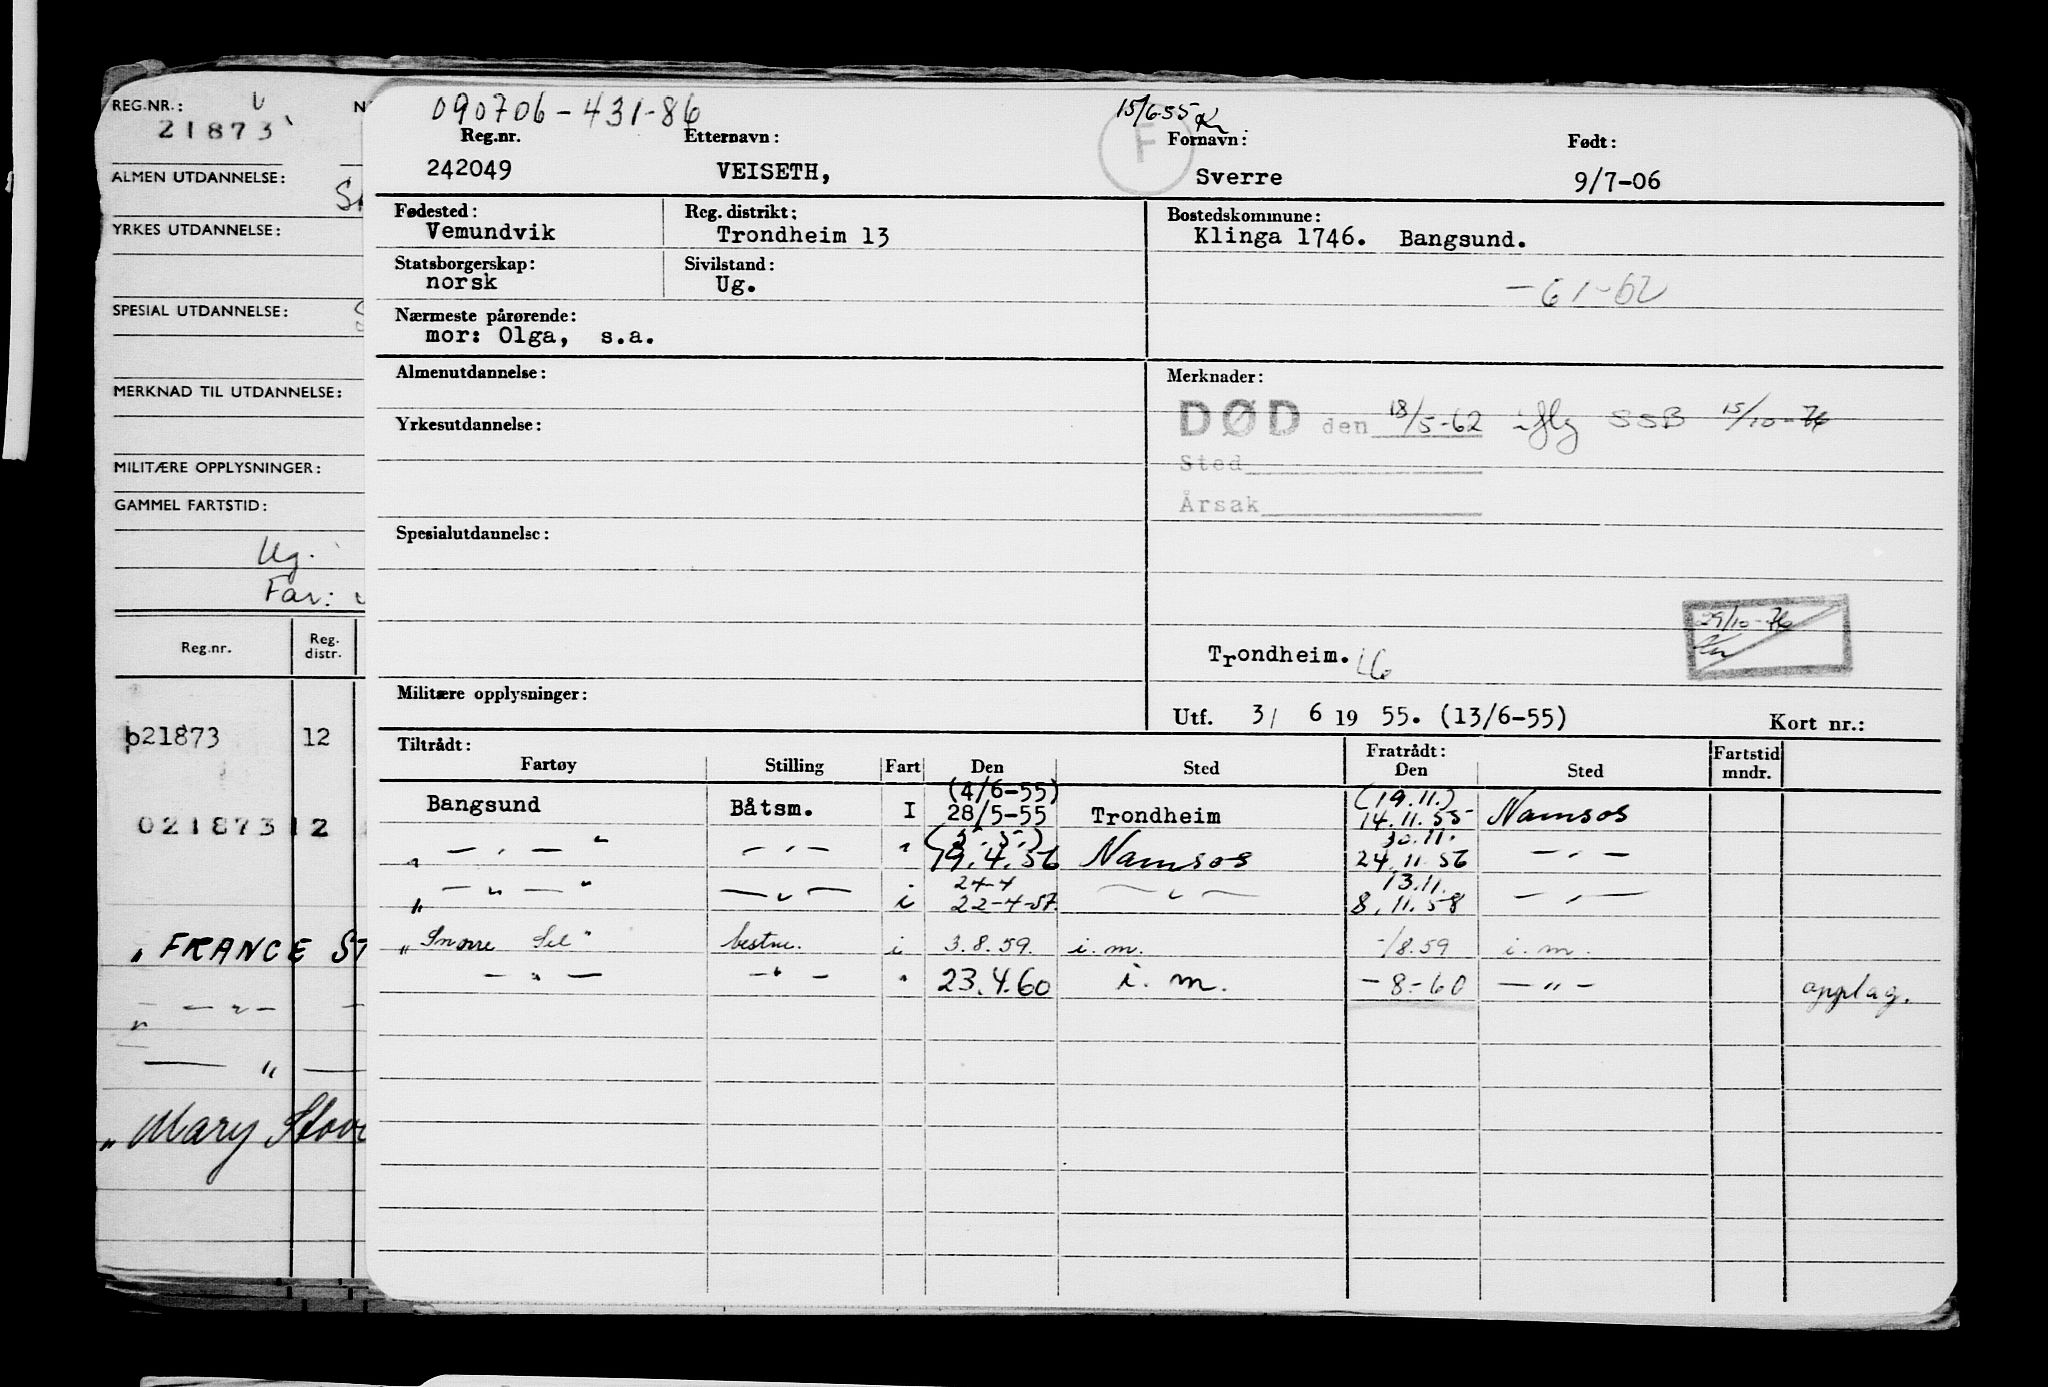 REG.NR.:
21873
ALMEN UTDANNELSE:
YRKES UTDANNELSE:
SPESIAL UTDANNELSE:
MERKNAD TIL UTDANNELSE:
MILITÆRE OPPLYSNINGER:
GAMMEL FARTSTID:
Ug.
Far:
Reg.nr. Reg. distr.
021873 12
021873 12
„ FRANCE ST
— „ —
— „ —
„ Mary Stove
090706-431-86 15/6-55
Reg.nr. Etternavn: F Fornavn: Født:
242049 VEISETH, Sverre 9/7-06
Fødested: Reg. distrikt: Bostedskommune:
Vemundvik Trondheim 13 Klinga 1746. Bangsund.
Statsborgerskap: Sivilstand:
norsk Ug. —61-62
Nærmeste pårørende:
mor: Olga, s.a.
Almenutdannelse: Merknader:
DØD den 18/5-62 iflg SSB 15/10-76
Yrkesutdannelse:
Sted
Årsak
Spesialutdannelse:
29/10-76
Trondheim.
Militære opplysninger:
Utf. 3/ 6 19 55. (13/6-55) Kort nr.:
Tiltrådt: Fratrådt: Fartstid mndr.
Fartøy Stilling Fart Den Sted Den Sted
(4/6-55) (19.11.)
Bangsund Båtsm. I 28/5-55 Trondheim 14.11.55 Namsos
(5.5.) 30.11.
„ — „ — " — „ — " 19.4.56 Namsos 24.11.56 — „ —
24-4 13.11.
„ — „ — " — „ — i 22-4-57. — „ — 8.11.58 — „ —
„ Snorre Sel " bestm. i 3.8.59. i.m. -/8.59 i.m.
— „ — — " — " 23.4.60 i.m. —8-60 — „ — opplag.